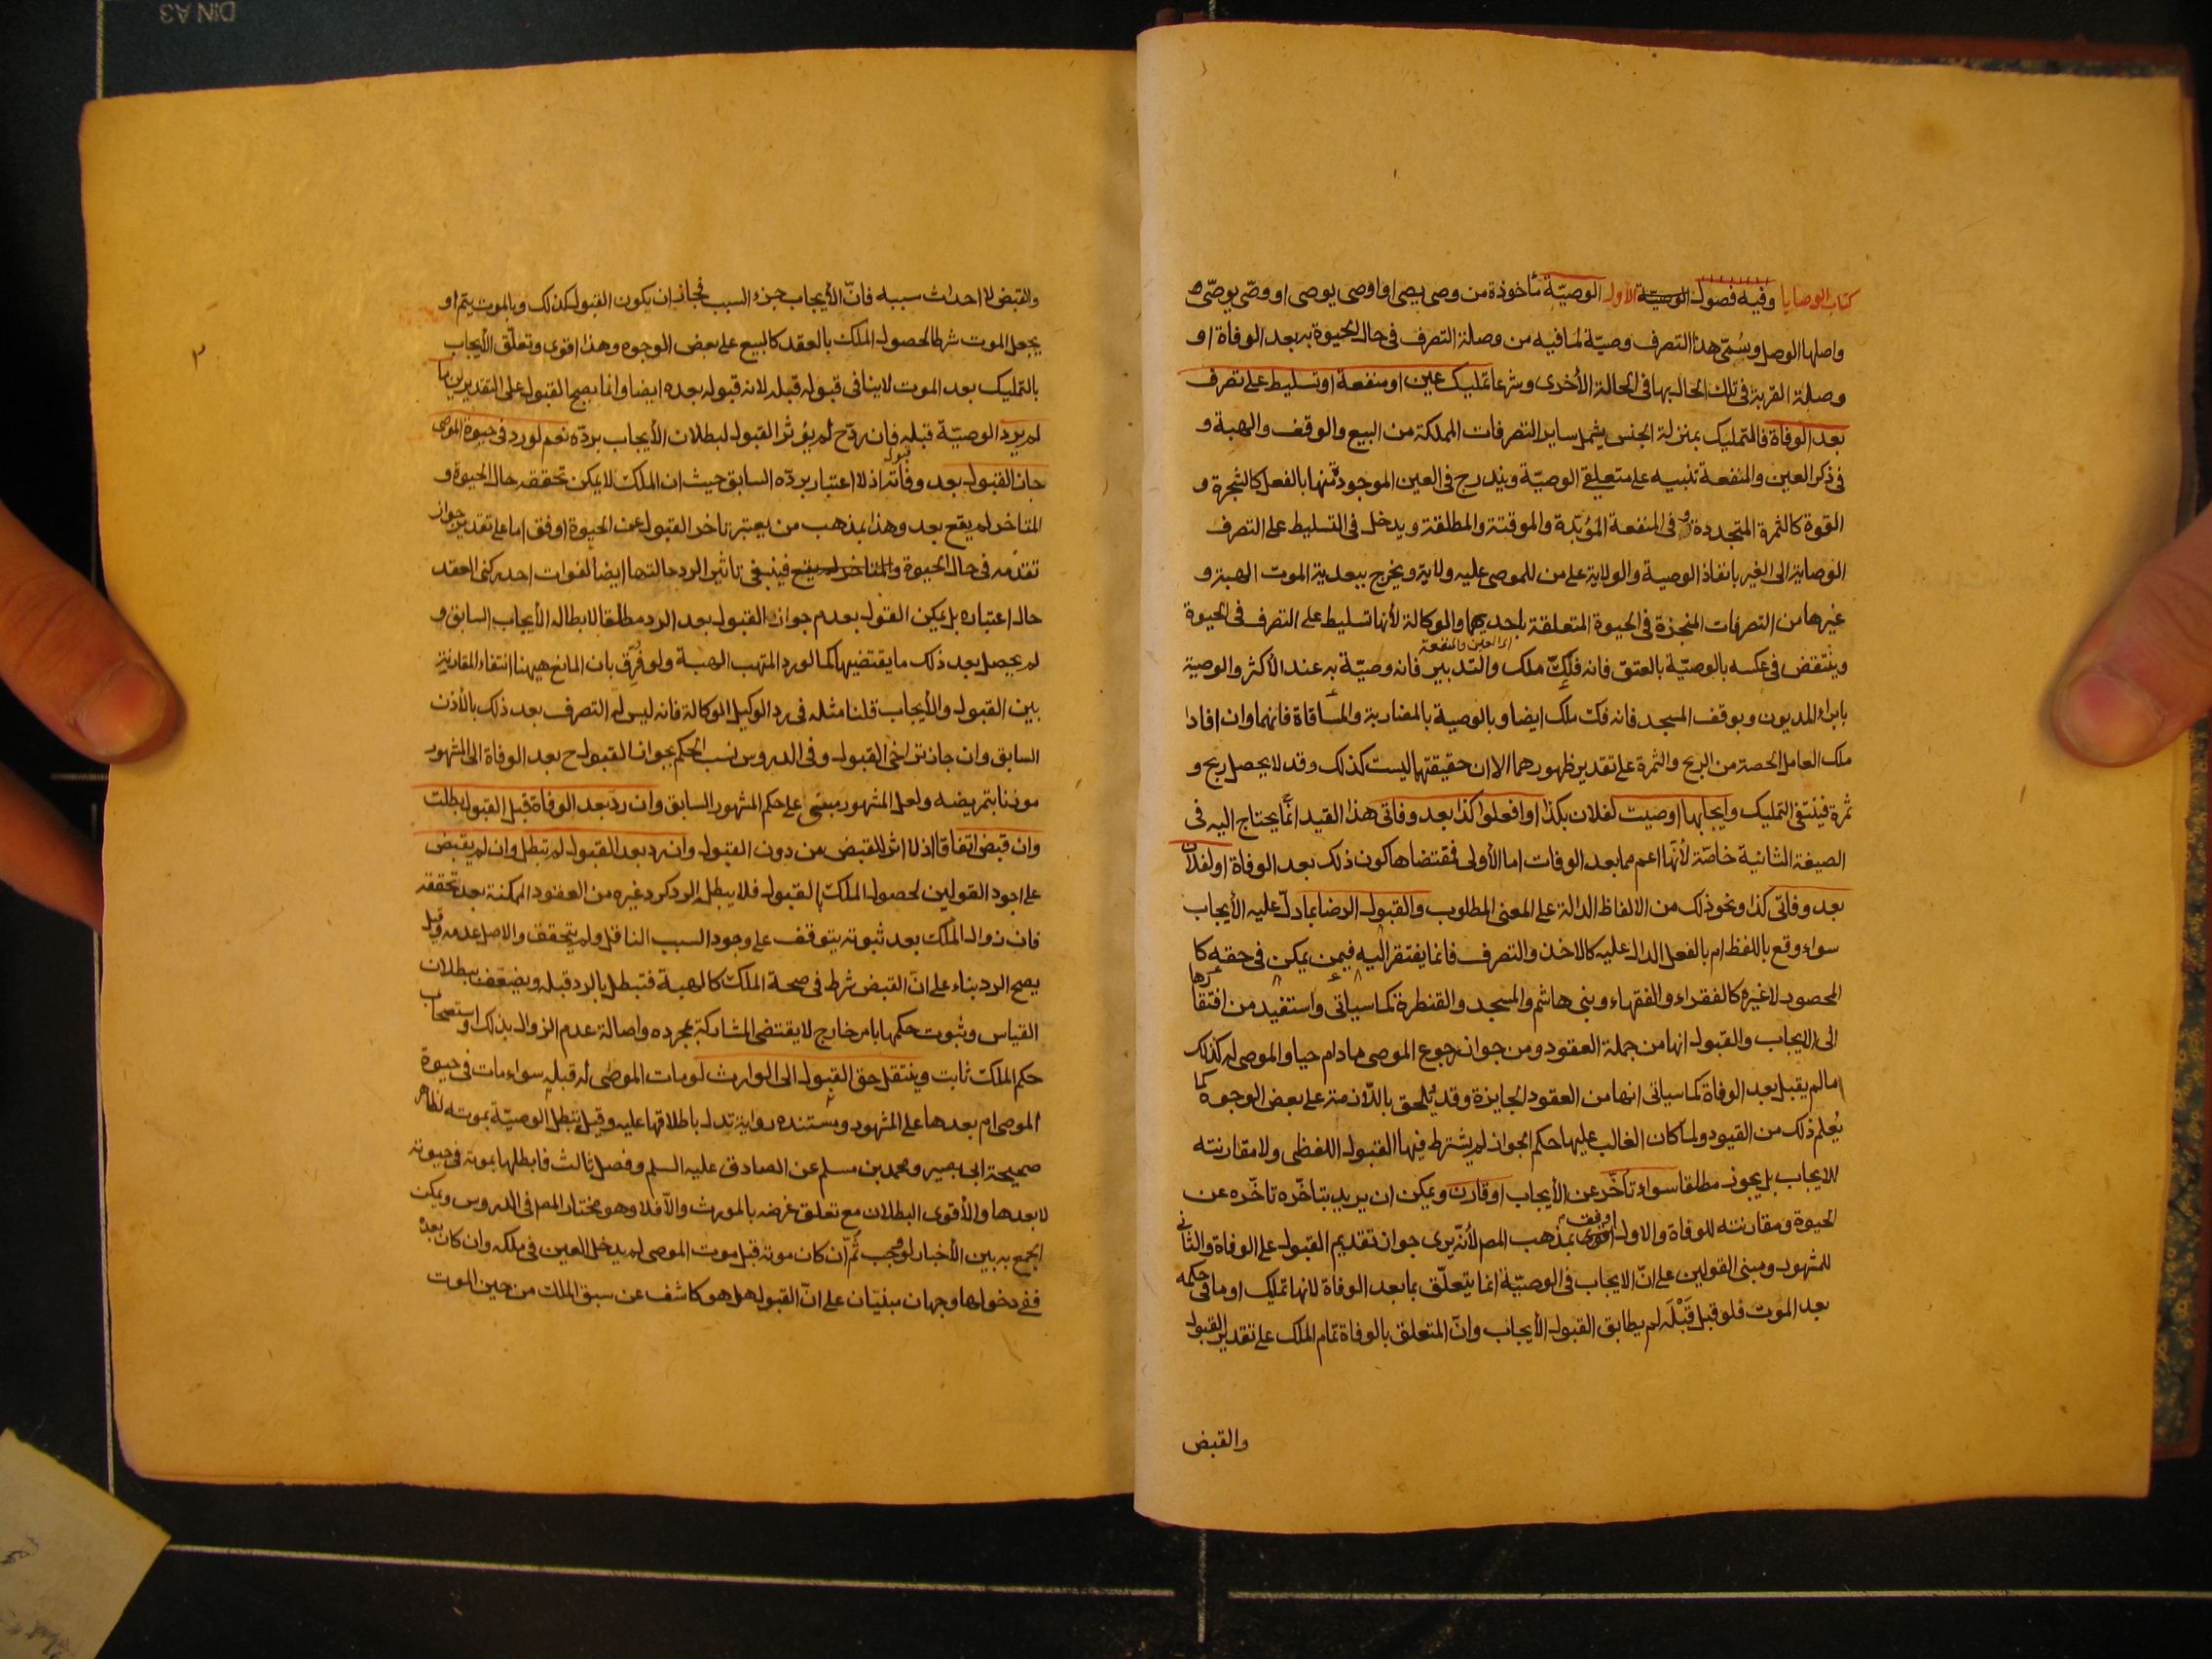 كتاب الوصايا وفيه فصول الوصية الأول الوصيّة مأخوذة من وصى يصى او اوصى يوصى او وصّى يوصّى
واصلها الوصل وسُمّى هذا التصرف وصيّة لما فيه من وصلة التصرف فى حال الحيوة به بعد الوفاة او
وصلة القربة فى تلك الحال بها فى الحالة الأخرى وشرعا تمليك عين او منفعة او تسليط على تصرف
بعد الوفاة فالتمليك بمنزلة الجنس يشمل ساير التصرفات المملكة من البيع والوقف والهبة و
فى ذكر العين والمنفعة تنبيه على متعلقى الوصيّة ويندرج فى العين الموجودة منها بالفعل كالشجرة و
القوة كالثمرة المتجددة وفى المنفعة المؤبدة والموقتة والمطلقة ويدخل فى التسليط على التصرف
الوصاية الى الغير بانفاذ الوصية والولاية على من للموصى عليه ولاية ويخرج ببعدية الموت الهبة و
غيرها من التصرفات المنجزة فى الحيوة المتعلقة باحديهما والوكالة لأنها تسليط على التصرف فى الحيوة
اى العين والمنفعة
وينتقض فى عكسه بالوصيّة بالعتق فانه فكّ ملك والتدبير فانه وصيّة به عند الأكثر والوصية
بابراء المديون وبوقف المسجد فانه فك ملك ايضا وبالوصية بالمضاربة والمساقاة فانهما وان افادا
ملك العامل الحصة من الربح والثمرة على تقدير ظهورهما الا ان حقيقتهما ليست كذلك وقد لا يحصل ربح و
ثمرة فينتفى التمليك وايجابها اوصيت لفلان بكذا او افعلوا كذا بعد وفاتى هذا القيد انما يحتاج اليه فى
الصيغة الثانية خاصّة لأنها اعم مما بعد الوفات اما الأولى فمقتضاها كون ذلك بعد الوفاة او لفلان
بعد وفاتى كذا ونحو ذلك من الالفاظ الدالة على المعنى المطلوب والقبول الرضا بما دلّ عليه الأيجاب
سواء وقع باللفظ ام بالفعل الدال عليه كالاخذ والتصرف فانما يفتقر اليه فيمن يمكن فى حقه كا
المحصور لا غيره كالفقراء والفقهاء وبنى هاشم والمسجد والقنطرة كما سياتى واستفيد من افتقارها
الى الايجاب والقبول انها من جملة العقود ومن جواز رجوع الموصى ما دام حيا والموصى له كذلك
ما لم يقبل بعد الوفاة كما سياتى انها من العقود الجايزة وقد تلحق باللازمة على بعض الوجوه كما
يُعلم ذلك من القيود ولما كان الغالب عليها حكم الجواز لم يشترط فيها القبول اللفظى ولا مقارنته
للايجاب بل يجوز مطلقا سواء تأخّر عن الأيجاب او قارن ويمكن ان يريد بتاخّره تاخّره عن
الحيوة ومقارنته للوفاة والاول اوفق بمذهب المص لأنّه يرى جواز تقديم القبول على الوفاة والثانى
للمشهور ومبنى القولين على انّ الايجاب فى الوصيّة انما يتعلّق بما بعد الوفاة لانها تمليك او ما فى حكمه
بعد الموت فلو قبل قَبْلَه لم يطابق القبول الأيجاب وانّ المتعلق بالوفاة تمام الملك على تقدير القبول
والقبض
والقبض لا احداث سببه فانّ الأيجاب جزء السبب فجاز ان يكون القبول كذلك وبالموت يتم او
يجعل الموت شرطا لحصول الملك بالعقد كالبيع على بعض الوجوه وهذا اقوى وتعلّق الأيجاب
بالتمليك بعد الموت لا ينافى قبوله قبله لانه قبوله بعده ايضا وانما يصح القبول على التقديرين ما
لم يرد الوصيّة قبله فان ردّ ح لم يؤثر القبول لبطلان الأيجاب بردّه نعم لو رد فى حيوة الموصى
جاز القبول بعد وفاته اذ لا اعتبار بردّه السابق حيث ان الملك لا يمكن تحققه حال الحيوة و
المتاخر لم يقع بعد وهذا بمذهب من يعتبر تاخر القبول عن الحيوة اوفق اما على تقدير جواز
تقدمه فى حال الحيوة والمتاخر لم يقع فينبغى تاثير الرد حالتها ايضا لفوات احد ركنى العقد
حال اعتباره بل يمكن القول بعدم جواز القبول بعد الرد مطلقا لابطاله الأيجاب السابق و
لم يحصل بعد ذلك ما يقتضيها كما لو رد المتهب الهبة ولو فُرّق بان المانع هيهنا انتفاء المقارنة
بين القبول والأيجاب قلنا مثله فى رد الوكيل الوكالة فانه ليس له التصرف بعد ذلك بالأذن
السابق وان جاز تراخى القبول وفى الدروس نسب الحكم بجواز القبول ح بعد الوفاة الى المشهور
موذنا بتمريضه ولعل المشهور مبنى على حكم المشهور السابق وان ردّ بعد الوفاة قبل القبول بطلت
وان قبض اتفاقا اذ لا اثر للقبض من دون القبول وان رد بعد القبول لم تبطل وان لم يقبض
على اجود القولين لحصول الملك بالقبول فلا يبطله الرد كرد غيره من العقود المملكة بعد تحققه
فان زوال الملك بعد ثبوته يتوقف على وجود السبب الناقل ولم يتحقق والاصل عدمه وقيل
يصح الرد بناء على انّ القبض شرط فى صحة الملك كالهبة فتبطل بالرد قبله ويضعف ببطلان
القياس وثبوت حكمها بامر خارج لا يقتضى المشاركة بمجرده واصالة عدم الزوال بذلك واستصحاب
حكم الملك ثابت وينتقل حق القبول الى الوارث لو مات الموصى له قبله سواء مات فى حيوة
الموصى ام بعدها على المشهور ومستنده رواية تدل باطلاقها عليه وقيل تبطل الوصيّة بموته لظاهر
صحيحة ابى بصير ومحمد بن مسلم عن الصادق عليه السلم وفصل ثالث فابطلها بموته فى حيوته
لا بعدها والأقوى البطلان مع تعلق غرضه بالمورث والّا فلا وهو مختار المص فى الدروس ويمكن
الجمع به بين الأخبار لو وجب ثُمّ ان كان موته قبل موت الموصى لم يدخل العين فى ملكه وان كان بعده
ففى دخولها وجهان مبنيّان على انّ القبول هل هو كاشف عن سبق الملك من حين الموت